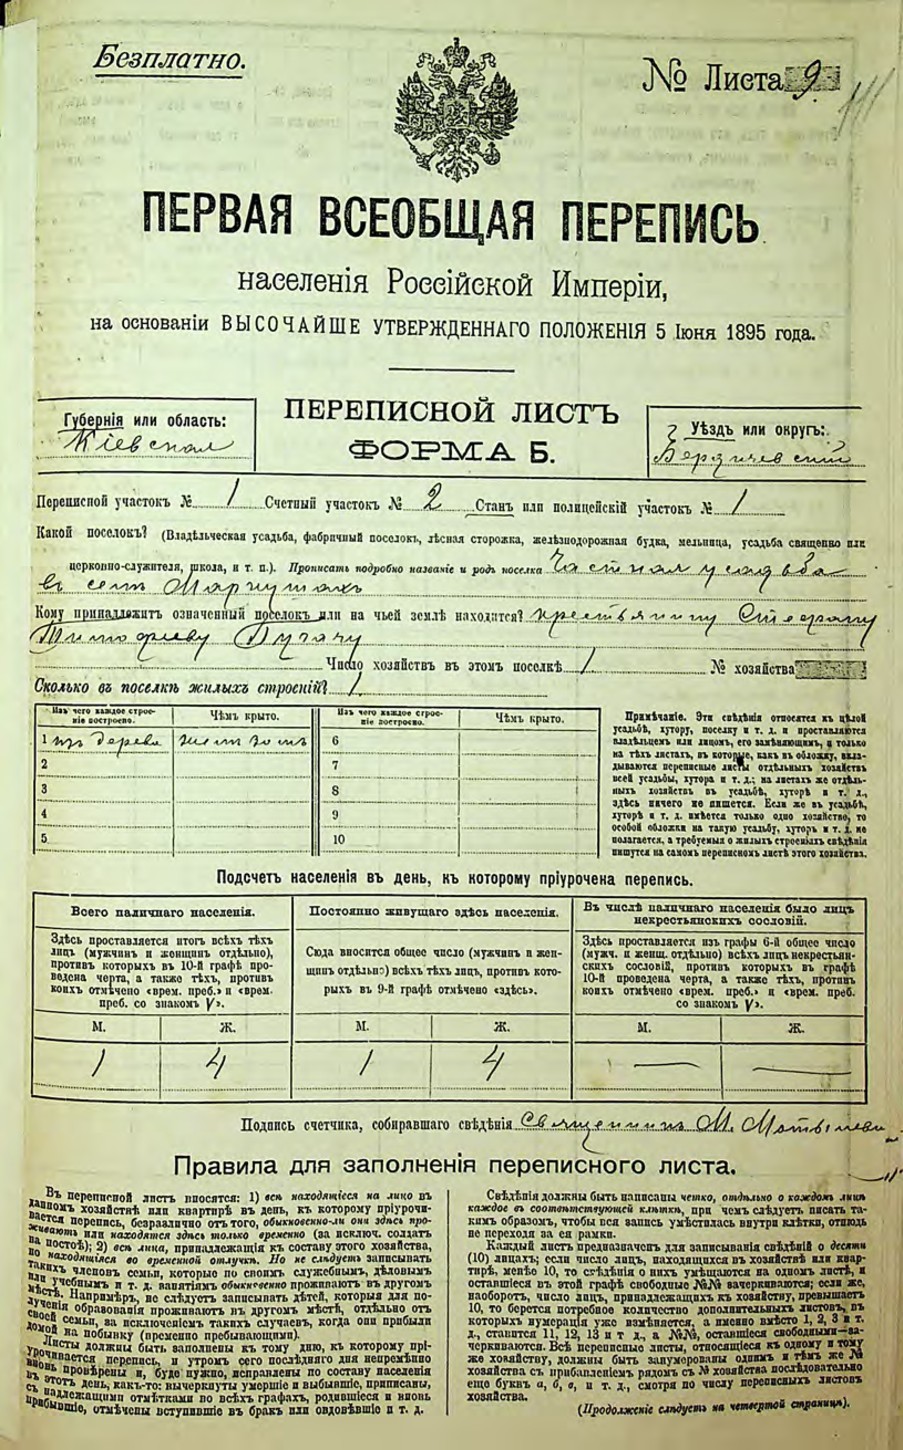 Безплатно.
№ Листа 9
ПЕРВАЯ ВСЕОБЩАЯ ПЕРЕПИСЬ
населенія Россійской Имперіи,
на основаніи ВЫСОЧАЙШЕ УТВЕРЖДЕННАГО ПОЛОЖЕНІЯ 5 Іюня 1895 года.
Губернія или область:
Кіевская
ПЕРЕПИСНОЙ ЛИСТЪ
ФОРМА Б.
Уѣздъ или округъ:
Бердичевскій
Переписной участокъ № 1 Счетный участокъ № 2 Станъ или полицейскій участокъ № 1
Какой поселокъ? (Владѣльческая усадьба, фабричный поселокъ, лѣсная сторожка, желѣзнодорожная будка, мельница, усадьба священно или
церковно-служителя, школа, и т. п.). Прописать подробно названіе и родъ поселка Частная усадьба
въ селѣ
Кому принадлежитъ означенный поселокъ или на чьей землѣ находится? крестьянину Стефану
Тимофееву
Число хозяйствъ въ этомъ поселкѣ 1 № хозяйства
Сколько въ поселкѣ жилыхъ строеній? 1
Изъ чего каждое строеніе построено. Чѣмъ крыто. Изъ чего каждое строеніе построено. Чѣмъ крыто.
1 изъ дерева 6
2 7
3 8
4 9
5 10
Примѣчаніе. Эти свѣдѣнія относятся къ цѣлой
усадьбѣ, хутору, поселку и т. д. и проставляются
владѣльцемъ или лицомъ, его замѣняющимъ, и только
на тѣхъ листахъ, въ которые, какъ въ обложку, вкла-
дываются переписные листы отдѣльныхъ хозяйствъ
всей усадьбы, хутора и т. д.; на листахъ же отдѣль-
ныхъ хозяйствъ въ усадьбѣ, хуторѣ и т. д.,
здѣсь ничего не пишется. Если же въ усадьбѣ,
хуторѣ и т. д. имѣется только одно хозяйство, то
особой обложки на такую усадьбу, хуторъ и т. д. не
полагается, а требуемыя о жилыхъ строеніяхъ свѣдѣнія
пишутся на самомъ переписномъ листѣ этого хозяйства.
Подсчетъ населенія въ день, къ которому пріурочена перепись.
Всего наличнаго населенія.
Здѣсь проставляется итогъ всѣхъ тѣхъ
лицъ (мужчинъ и женщинъ отдѣльно),
противъ которыхъ въ 10-й графѣ про-
ведена черта, а также тѣхъ, противъ
коихъ отмѣчено «врем. преб.» и «врем.
преб. со знакомъ V».
М. Ж.
1 4
Постоянно живущаго здѣсь населенія.
Сюда вносится общее число (мужчинъ и жен-
щинъ отдѣльно) всѣхъ тѣхъ лицъ, противъ кото-
рыхъ въ 9-й графѣ отмѣчено «здѣсь».
М. Ж.
1 4
Въ числѣ наличнаго населенія было лицъ
некрестьянскихъ сословій.
Здѣсь проставляется изъ графы 6-й общее число
(мужч. и женщ. отдѣльно) всѣхъ лицъ некрестьян-
скихъ сословій, противъ которыхъ въ графѣ
10-й проведена черта, а также тѣхъ, противъ
коихъ отмѣчено «врем. преб.» и «врем. преб.
со знакомъ V».
М. Ж.
— —
Подпись счетчика, собиравшаго свѣдѣнія Священникъ М.
Правила для заполненія переписного листа.
Въ переписной листъ вносятся: 1) всѣ находящіеся на лицо въ
данномъ хозяйствѣ или квартирѣ въ день, къ которому пріурочи-
вается перепись, безразлично отъ того, обыкновенно-ли они здѣсь про-
живаютъ или находятся здѣсь только временно (за исключ. солдатъ
на постоѣ); 2) всѣ лица, принадлежащія къ составу этого хозяйства,
но находящіяся во временной отлучкѣ. Но не слѣдуетъ записывать
такихъ членовъ семьи, которые по своимъ служебнымъ, дѣловымъ
или учебнымъ и т. д. занятіямъ обыкновенно проживаютъ въ другомъ
мѣстѣ. Напримѣръ, не слѣдуетъ записывать дѣтей, которыя для по-
лученія образованія проживаютъ въ другомъ мѣстѣ, отдѣльно отъ
своей семьи, за исключеніемъ такихъ случаевъ, когда они прибыли
домой на побывку (временно пребывающими).
Листы должны быть заполнены къ тому дню, къ которому прі-
урочивается перепись, и утромъ сего послѣдняго дня непремѣнно
вновь провѣрены и, буде нужно, исправлены по составу населенія
въ этотъ день, какъ-то: вычеркнуты умершіе и выбывшіе, приписаны,
съ надлежащими отмѣтками по всѣхъ графахъ, родившіеся и вновь
прибывшіе, отмѣчены вступившіе въ бракъ или овдовѣвшіе и т. д.
Свѣдѣнія должны быть написаны четко, отдѣльно о каждомъ лицѣ
каждое въ соотвѣтствующей клѣткѣ, при чемъ слѣдуетъ писать та-
кимъ образомъ, чтобы вся запись умѣстилась внутри клѣтки, отнюдь
не переходя за ея рамки.
Каждый листъ предназначенъ для записыванія свѣдѣній о десяти
(10) лицахъ; если число лицъ, находящихся въ хозяйствѣ или квар-
тирѣ, менѣе 10, то свѣдѣнія о нихъ умѣщаются на одномъ листѣ, и
оставшіеся въ этой графѣ свободные №№ вачеркиваются; если же,
наоборотъ, число лицъ, принадлежащихъ къ хозяйству, превышаетъ
10, то берется потребное количество дополнительныхъ листовъ, въ
которыхъ нумерація уже измѣняется, а именно вмѣсто 1, 2, 3 и т.
д., ставится 11, 12, 13 и т д., а №№, оставшіеся свободными—за-
черкиваются. Всѣ переписные листы, относящіеся къ одному и тому
же хозяйству, должны быть занумерованы однимъ и тѣмъ же №
хозяйства съ прибавленіемъ рядомъ съ № хозяйства послѣдовательно
еще буквъ а, б, в, и т. д., смотря по числу переписныхъ листовъ
хозяйства.
(Продолженіе слѣдуетъ на четвертой страницѣ).